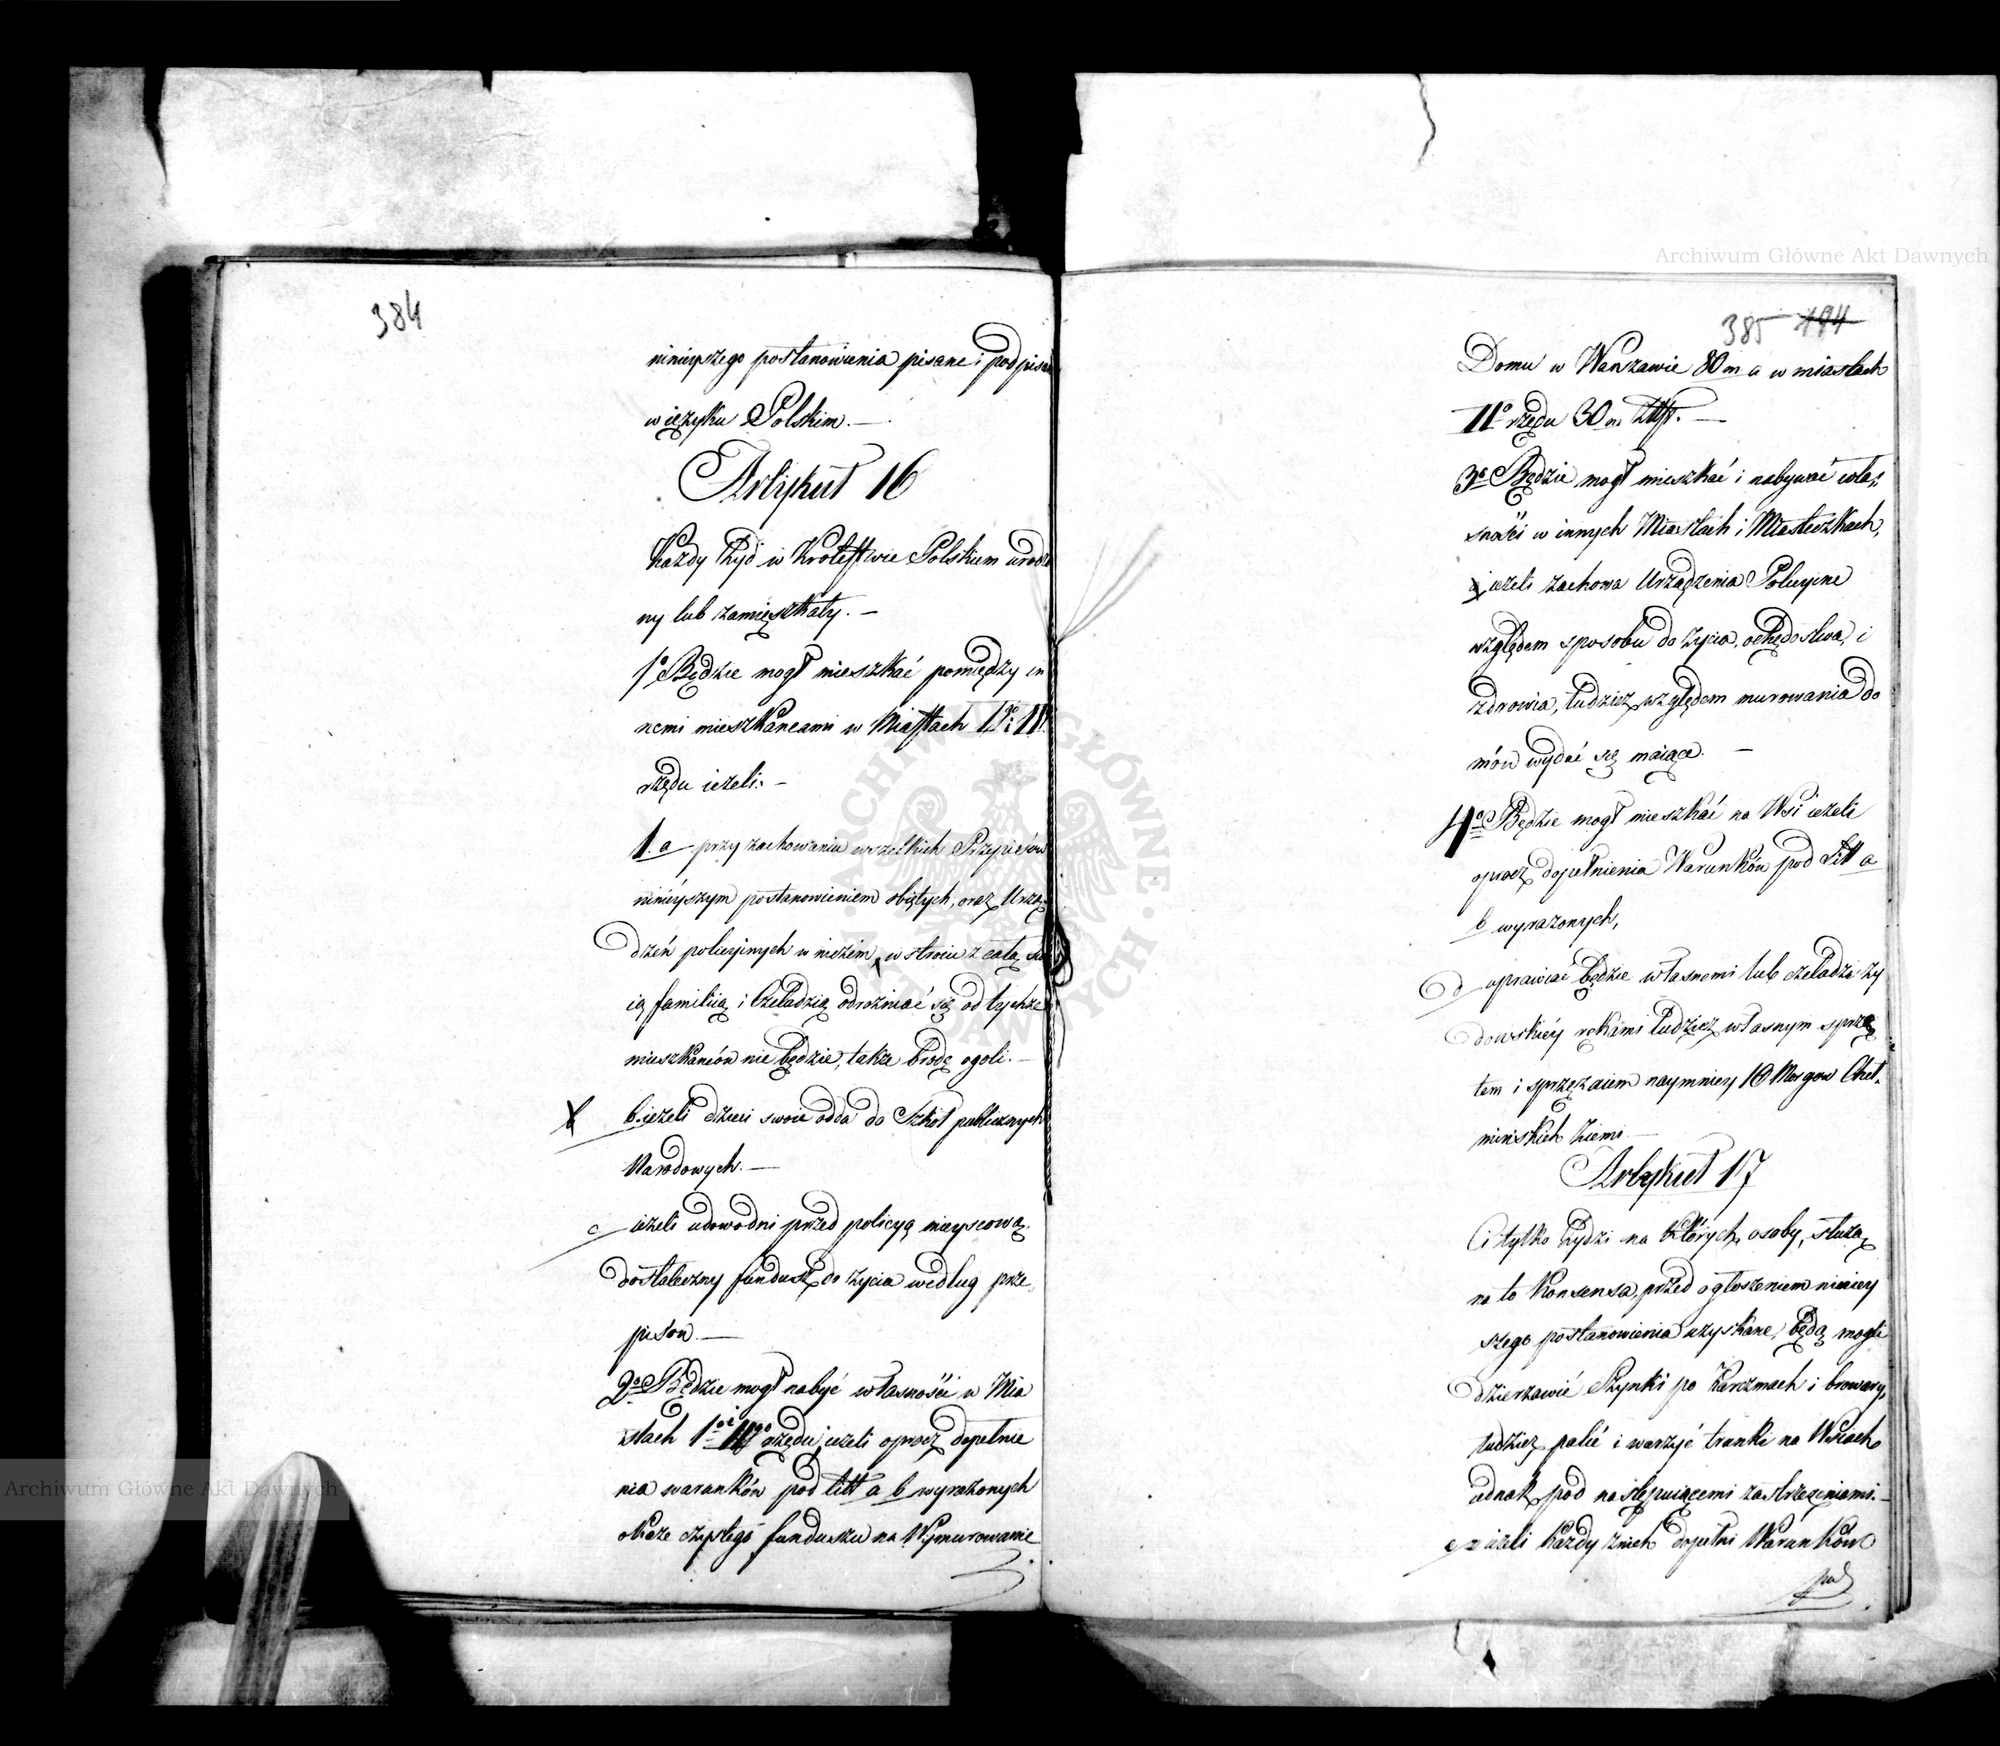 384
ninieyszego postanowienia pisane i podpisa
w ięzyku Polskim. —
Artykuł 16
Każdy Żyd w Krolestwie Polskiem urodzo
ny lub zamięszkały. —
1o Będzie mogł mieszkać pomiędzy in
nemi mieszkańcami w Miastach Igo i II
rzędu ieżeli: —
1. a przy zachowaniu wszelkich Przepisów
ninieyszym postanowieniem obiętych, oraz Urzą
dzeń policyinych w niczem, w stroiu z całą sw
ią familią i Czeladzią odrożniać się od tychże
mieszkańców nie będzie, także brodę ogoli. —
b. ieżeli dzieci swoie odda do Szkoł publicznych
Narodowych. —
c ieżeli udowodni przed policyą mieyscową
dostateczny fundusz do życia według prze
pisow. —
2o Będzie mogł nabyć własności w Mia
stach 1o i IIgo rzędu, ieżeli oprocz dopełnie
nia warunków pod litt a b wyrażonych
okaże czystego funduszu na Wymurowanie
385 194
Domu w Warszawie 80 m a w miastach
IIo rzędu 30 m Złłp. —
3o Będzie mogł mieszkać i nabywać wła:
sności w innych Miastach i Miasteczkach,
ieżeli zachowa Urządzenia Policyine
względem sposobu do życia, ochędostwa, i
zdrowia, tudzież względem murowania do
mów wydać się maiące. —
4o Będzie mogł mieszkać na Wsi ieżeli
oprocz dopełnienia Warunków pod Litt a
b wyrażonych,
d uprawiać będzie własnemi lub czeladzi ży
dowskiéy rękami tudzież własnym sprzę
tem i sprzężaiem naymniey 10 Morgow Cheł,
mińskich Ziemi —
Artykuł 17
Ci tylko Żydzi na których osoby, służą
na to Konsensa, przed ogłoszeniem niniey
szego postanowienia uzyskane, będą mogli
dzierżawić Szynki po Karczmach i browary,
tudzież palić i warzyć trunki na Wsiach
iednak pod następuiącemi zastrzeżeniami. —
a ieżeli każdy znich dopełni Warunków
pod
Archiwum Główne Akt Dawnych
Archiwum Główne Akt Dawnych
ARCHIWUM GŁÓWNE AKT DAWNYCH